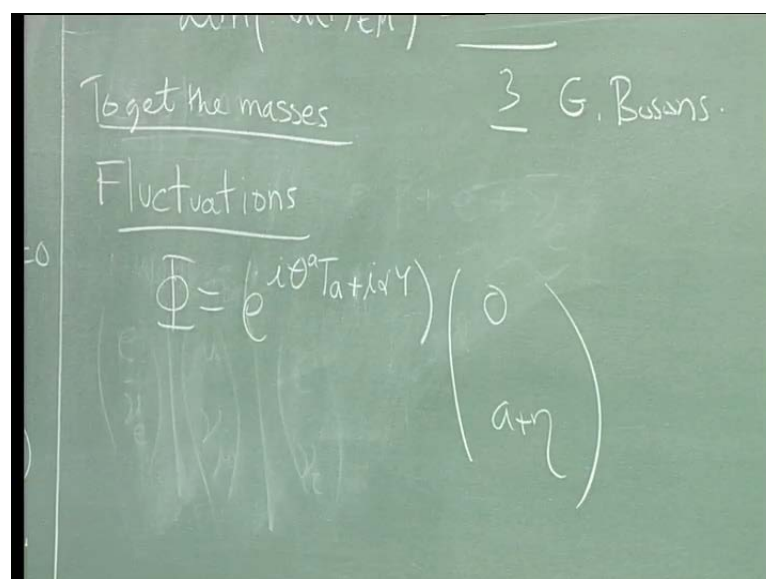 To get the masses
3 G. Bosons.
Fluctuations
=0
Φ = (e^{iθ^a T_a + iαY}) ( 0
a+η )